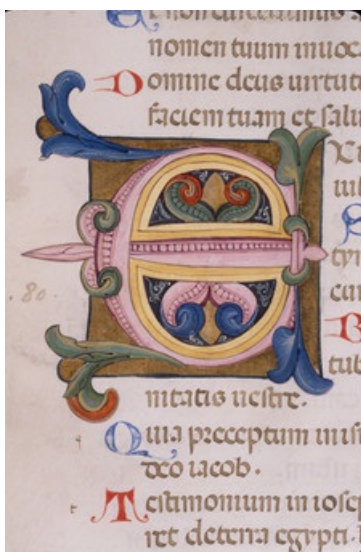 nomen tuum inuoc
Domine deus uirtut
faciem tuam et salu
E
. 80.
tub
nitatis uestre.
Quia preceptum in is
deo iacob.
Testimonium in iosep
ret de terra egypti.